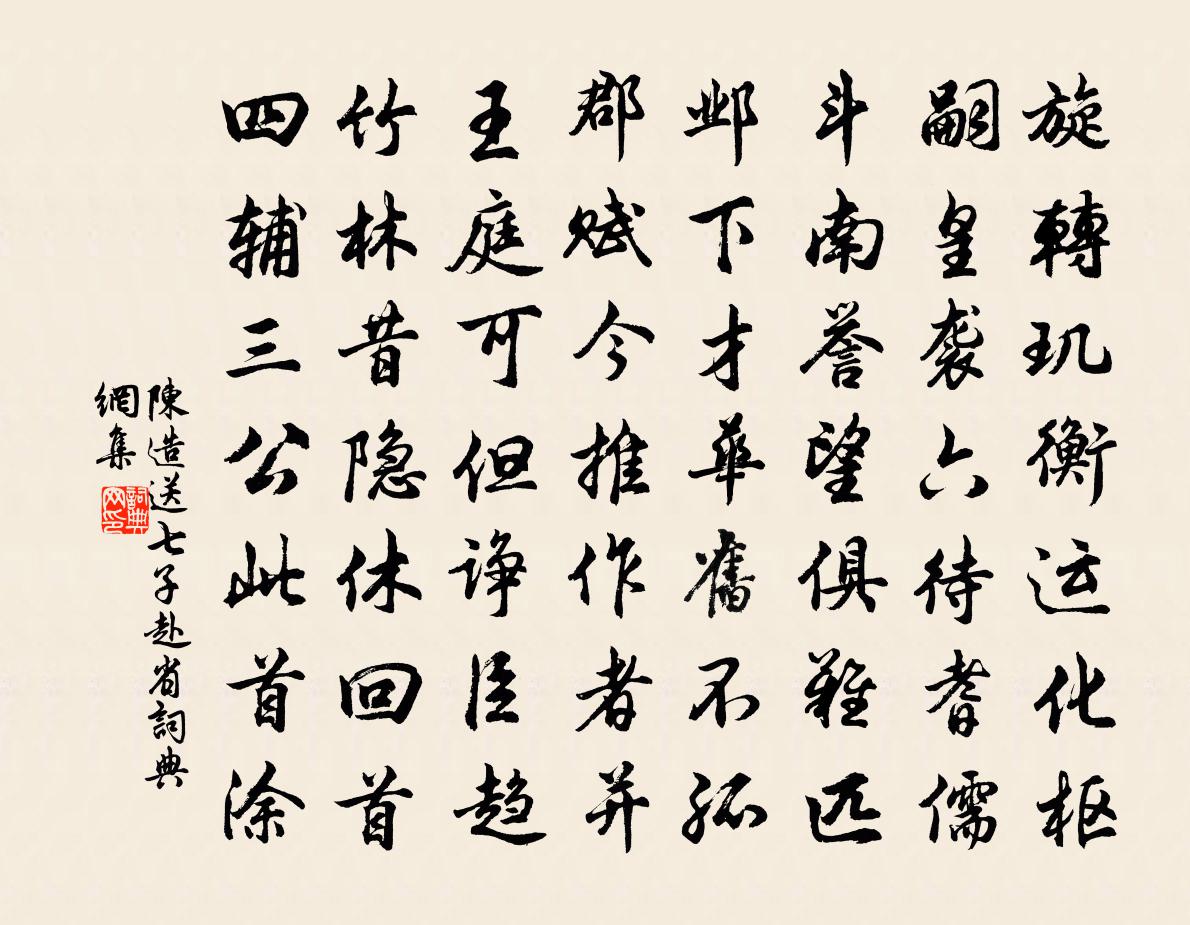 旋轉玑衡运化枢
嗣皇袭六待耆儒
斗南誉望俱難匹
邺下才華舊不孤
郡赋今推作者并
王庭可但诤臣趋
竹林昔隐休回首
四辅三公此首涂
陳造送七子赴省詞典
網集
詞典
网印